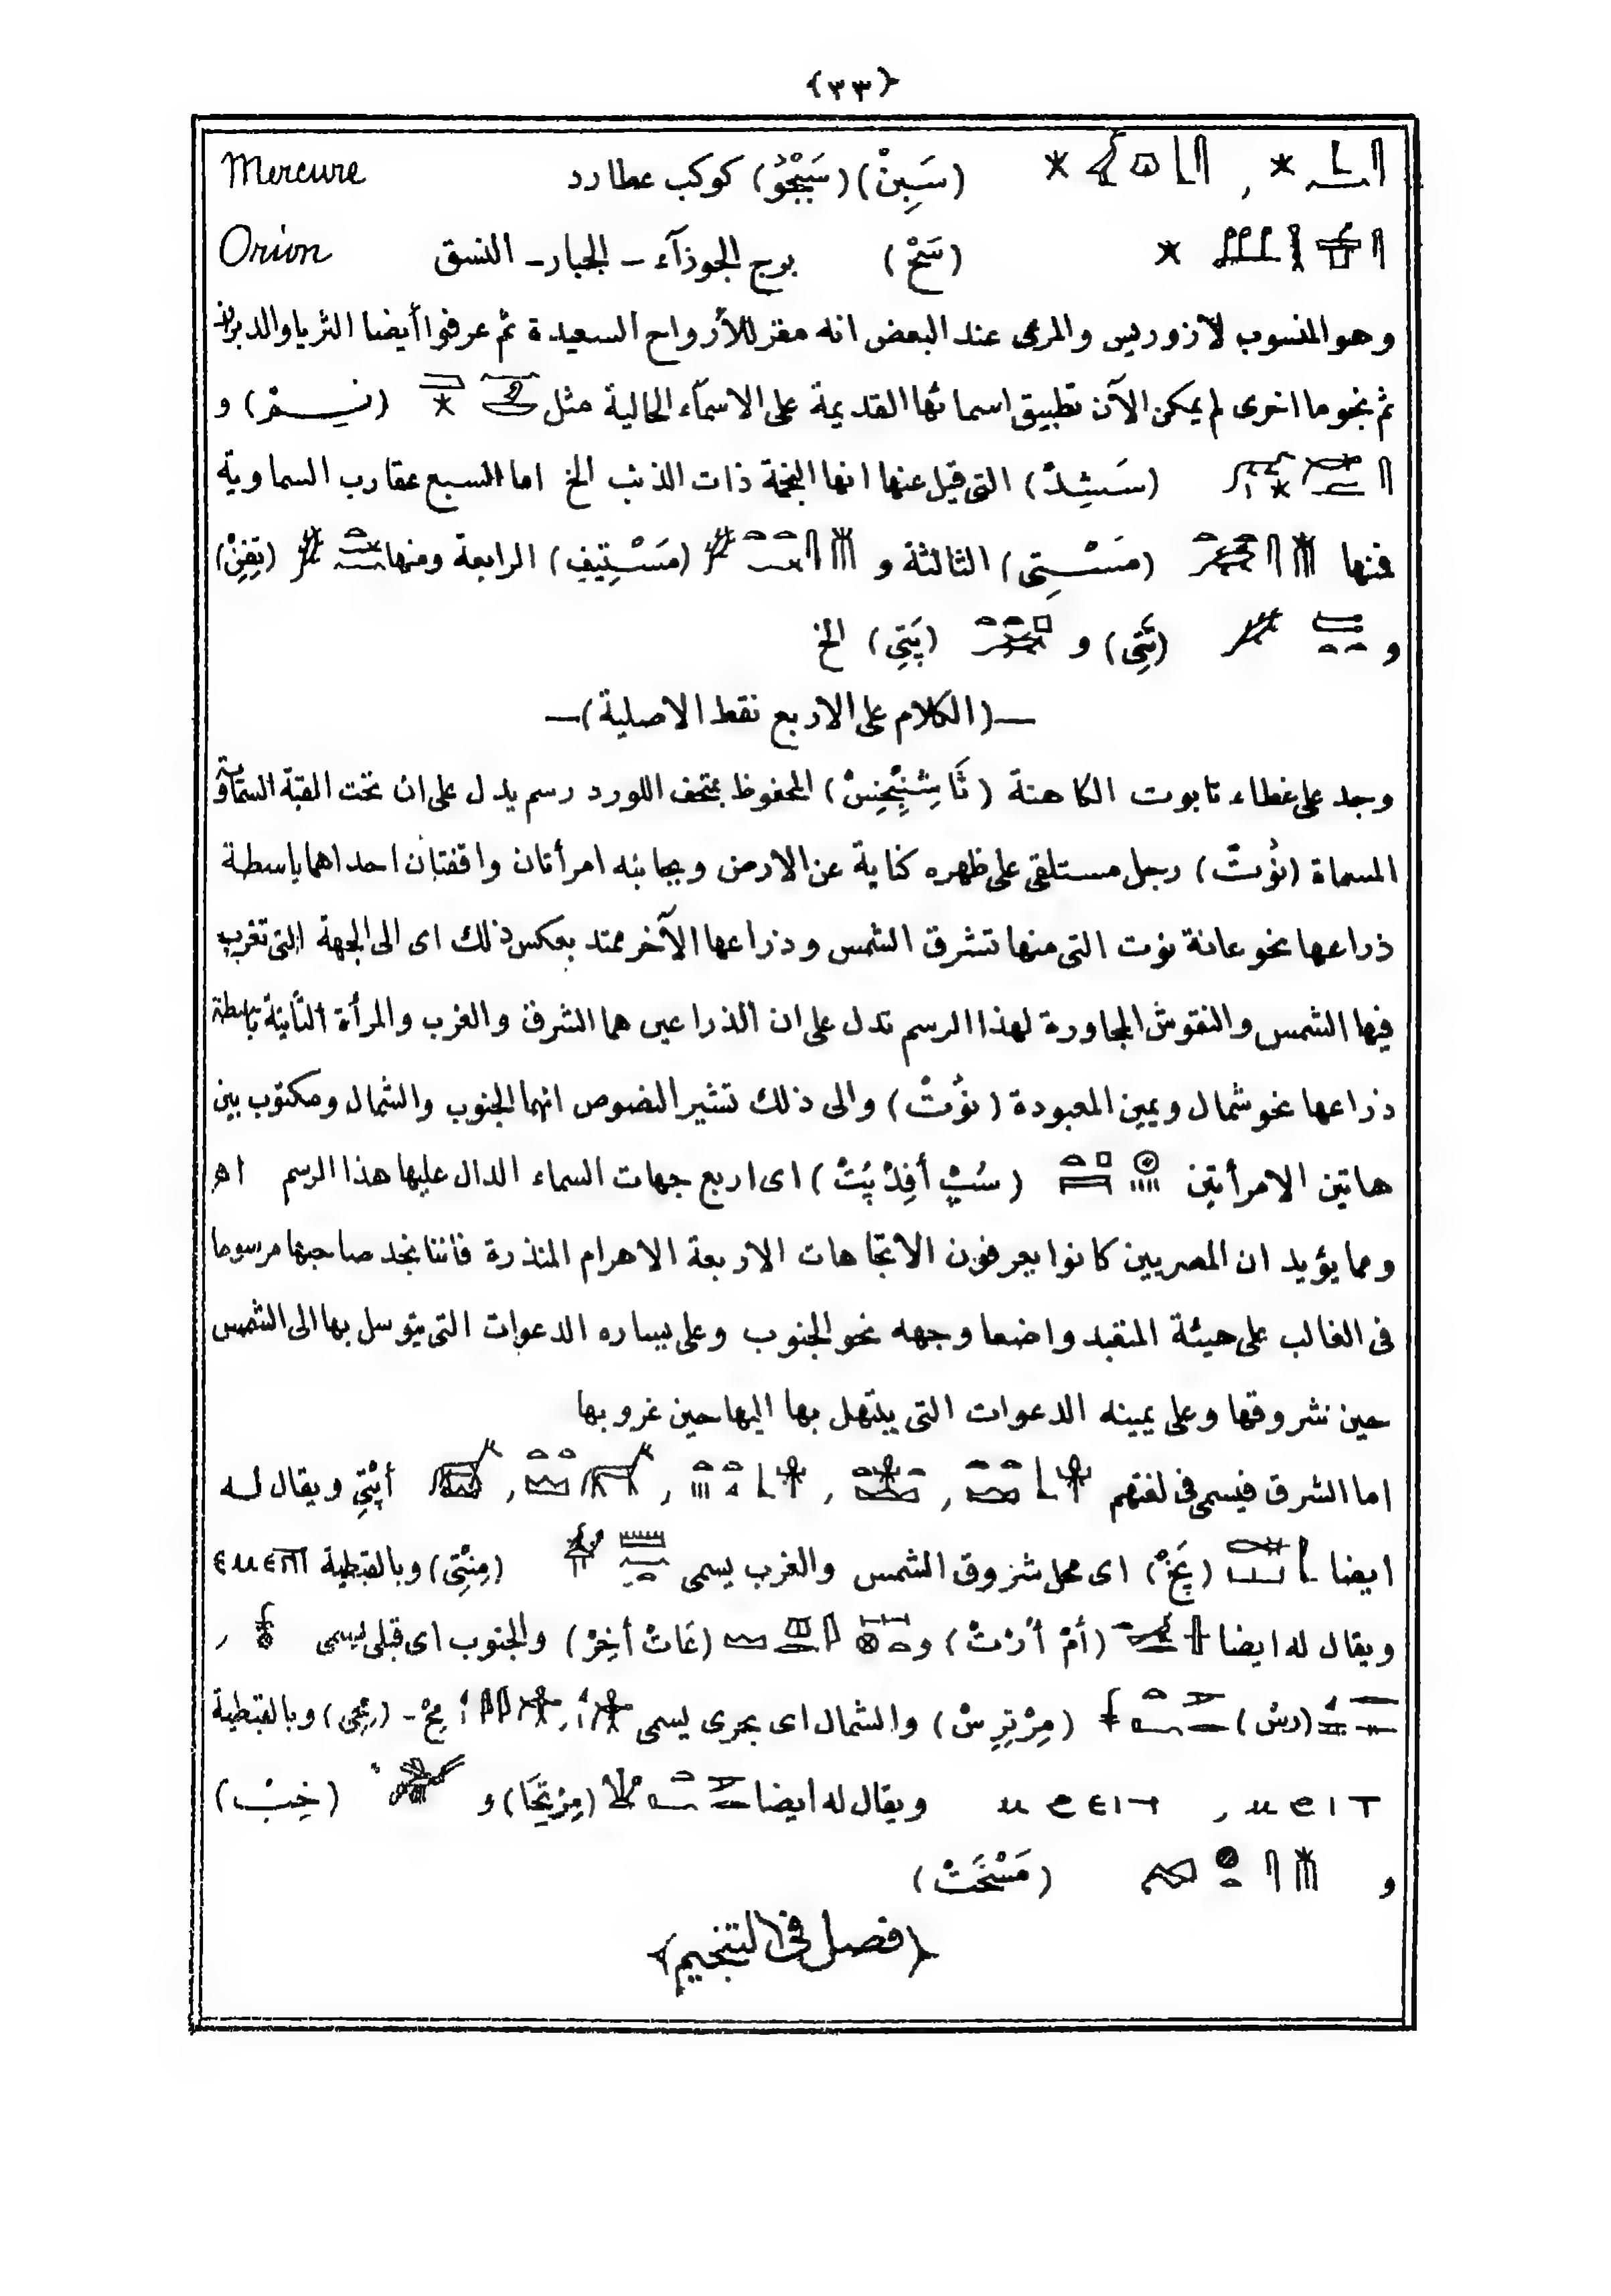 {٣٣}
(سَبِنْ) (سَبْجُوُ) كوكب عطارد Mercure
(سَحْ) برج الجوزآء – الجبار – النسق Orion
وهو المنسوب لازوريس والمرعى عند البعض انه مقر للأرواح السعيدة ثم عرفوا أيضا الثريا والدبران
ثم نجوما اخرى لم يمكن الآن تطبيق اسمائها القديمة على الاسمآء الحالية مثل (نِسِمْ) و
(سَشِدْ) التى قيل عنها انها النجمة ذات الذنب الخ اما السبع عقارب السماوية
فمنها (مَسْتِى) الثالثة و (مَسْتِيفِ) الرابعة ومنها (تِفِنْ)
و (تَتِى) و (پَتِى) الخ
—(الكلام على الاربع نقط الاصلية)—
وجد على غطاء تابوت الكاهنة المحفوظ بمتحف اللورد رسم يدل على ان تحت القبة السماوية
المسماة (نوُتْ) رجل مستلقى على ظهره كناية عن الارض وبجانبه امرأتان واقفتان احداهما باسطة
ذراعها نحو عانة نوت التى منها تشرق الشمس وذراعها الآخر ممتد بعكس ذلك اى الى الجهة التى تغرب
فيها الشمس والنقوش المجاورة لهذا الرسم تدل على ان الذراعين هما الشرق والغرب والمرأة الثانية باسطة
ذراعها نحو شمال ويمين المعبودة (نوُتْ) والى ذلك تشير النصوص انهما الجنوب والشمال ومكتوب بين
هاتين الامرأتين (سُپْ أفِدْ پُتْ) اى اربع جهات السماء الدال عليها هذا الرسم اهـ
ومما يؤيد ان المصريين كانوا يعرفون الاتجاهات الاربعة الاهرام المنذرة فاننا نجد صاحبها مرسوما
فى الغالب على هيئة المتعبد واضعا وجهه نحو الجنوب وعلى يساره الدعوات التى يتوسل بها الى الشمس
حين شروقها وعلى يمينه الدعوات التى يبتهل بها اليها حين غروبها
اما الشرق فيسمى فى لغتهم أبْتِى ويقال له
ايضا (بَخْ) اى محل شروق الشمس والغرب يسمى (مِنْتِى) وبالقبطية
ويقال له ايضا (أمْ أرْتْ) و (عَاتْ أخِرْ) والجنوب اى قبلى يسمى ,
(رِسْ) (مِرْتِرِسْ) والشمال اى بحرى يسمى مِحْ - (مِحِى) وبالقبطية
ويقال له ايضا (مِرْتِحَا) و (خِبْ)
و (مَسْخَتْ)
{فصل فى التنجيم}